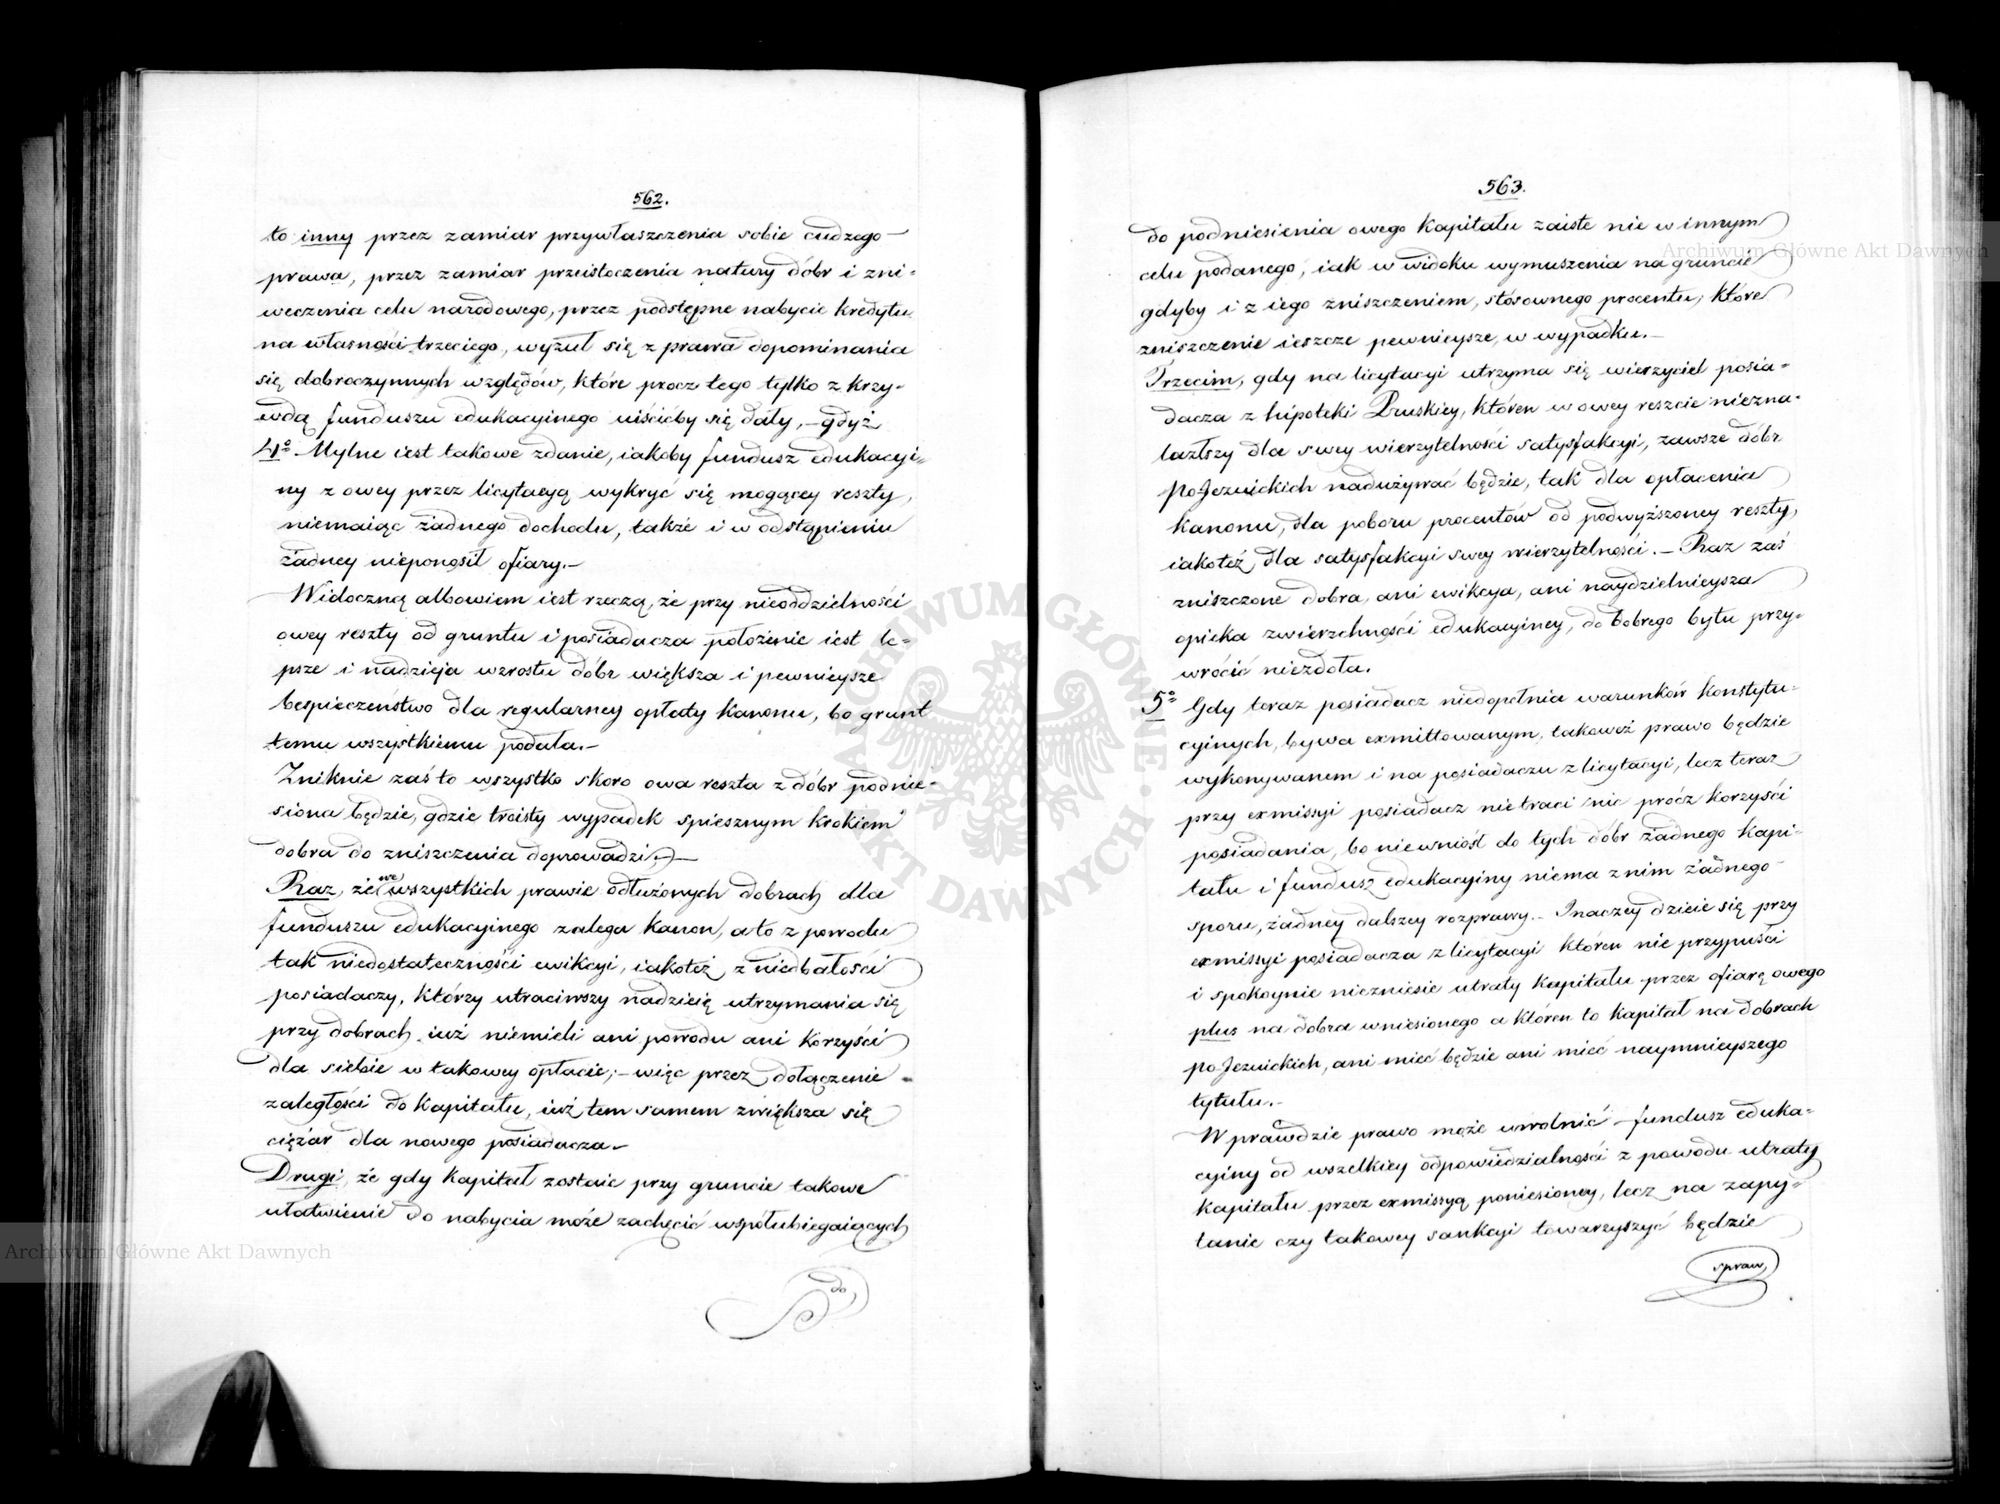 562.
to inny przez zamiar przywłaszczenia sobie cudzego
prawa, przez zamiar przeistoczenia natury dóbr i zni-
weczenia celu narodowego, przez podstępne nabycie kredytu
na własności trzeciego, wyzuł się z prawa dopominania
się dobroczynnych względów, które procz tego tylko z krzy-
wdą funduszu edukacyjnego uiścićby się dały, - gdyż
4o. Mylne iest takowe zdanie, iakoby fundusz edukacyi-
ny z owey przez licytacyą wykryć się mogącey reszty,
niemaiąc żadnego dochodu, także i w odstąpieniu
żadney nieponosił ofiary. -
Widoczną albowiem iest rzeczą, że przy nieoddzielności
owey reszty od gruntu i posiadacza położenie iest le-
psze i nadzieja wzrostu dóbr większa i pewnieysze
bespieczeństwo dla regularney opłaty Kanonu, bo grunt
temu wszystkiemu podoła. -
Zniknie zaś to wszystko skoro owa reszta z dóbr podnie-
siona będzie, gdzie troisty wypadek spiesznym krokiem
dobra do zniszczenia doprowadzi. -
Raz, że we wszystkich prawie odłużonych dobrach dla
funduszu edukacyjnego zalega Kanon, a to z powodu
tak niedostateczności ewikcyi, iakoteż z niedbałości
posiadaczy, którzy utraciwszy nadzieię utrzymania się
przy dobrach iuż niemieli ani powodu ani korzyści
dla siebie w takowey opłacie; - więc przez dołączenie
zaległości do Kapitału, iuż tem samem zwiększa się
ciężar dla nowego posiadacza. -
Drugi, że gdy Kapitał zostaie przy gruncie takowe
ułatwienie do nabycia może zachęcić współubiegaiących
do
563.
do podniesienia owego Kapitału zaiste nie w innym
celu podanego, iak w widoku wymuszenia na gruncie
gdyby i z iego zniszczeniem, stósownego procentu, które
zniszczenie ieszcze pewnieysze w wypadku. -
Trzecim, gdy na licytacyi utrzyma się wierzyciel posia-
dacza z hipoteki Pruskiey, któren w owey reszcie niezna-
lazłszy dla swey wierzytelności satysfakcyi, zawsze dóbr
PoJezuickich nadużywać będzie, tak dla opłacenia
Kanonu, dla poboru procentów od podwyższoney reszty,
iakoteż dla satysfakcyi swey wierzytelności. - Raz zaś
zniszczone dobra, ani ewikcya, ani naydzielnieysza
opieka zwierzchności edukacyiney, do dobrego bytu przy-
wrócić niezdoła.
5o Gdy teraz posiadacz niedopełnia warunków Konstytu-
cyinych, bywa exmittowanym, takoweż prawo będzie
wykonywanem i na posiadaczu z licytacyi, lecz teraz
przy exmissyi posiadacz nietraci nic prócz Korzyści
posiadania, bo niewniósł do tych dóbr żadnego Kapi-
tału i fundusz edukacyiny niema z nim żadnego
sporu, żadney dalszey rozprawy. - Inaczey dzieie się przy
exmissyi posiadacza z licytacyi któren nie przypuści
i spokoynie niezniesie utraty Kapitału przez ofiarę owego
plus na dobra wniesionego a któren to Kapitał na dobrach
poJezuickich, ani mieć będzie ani mieć naymnieyszego
tytułu. -
Wprawdzie prawo może uwolnić fundusz eduka-
cyiny od wszelkiey odpowiedzialności z powodu utraty
Kapitału przez exmissyą poniesioney, lecz na zapy-
tanie czy takowey sankcyi towarzyszyć będzie
spraw,
Archiwum Główne Akt Dawnych
Archiwum Główne Akt Dawnych
ARCHIWUM GŁÓWNE AKT DAWNYCH